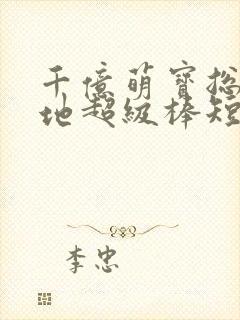 千億萌寶総
地超級棒短
李忠